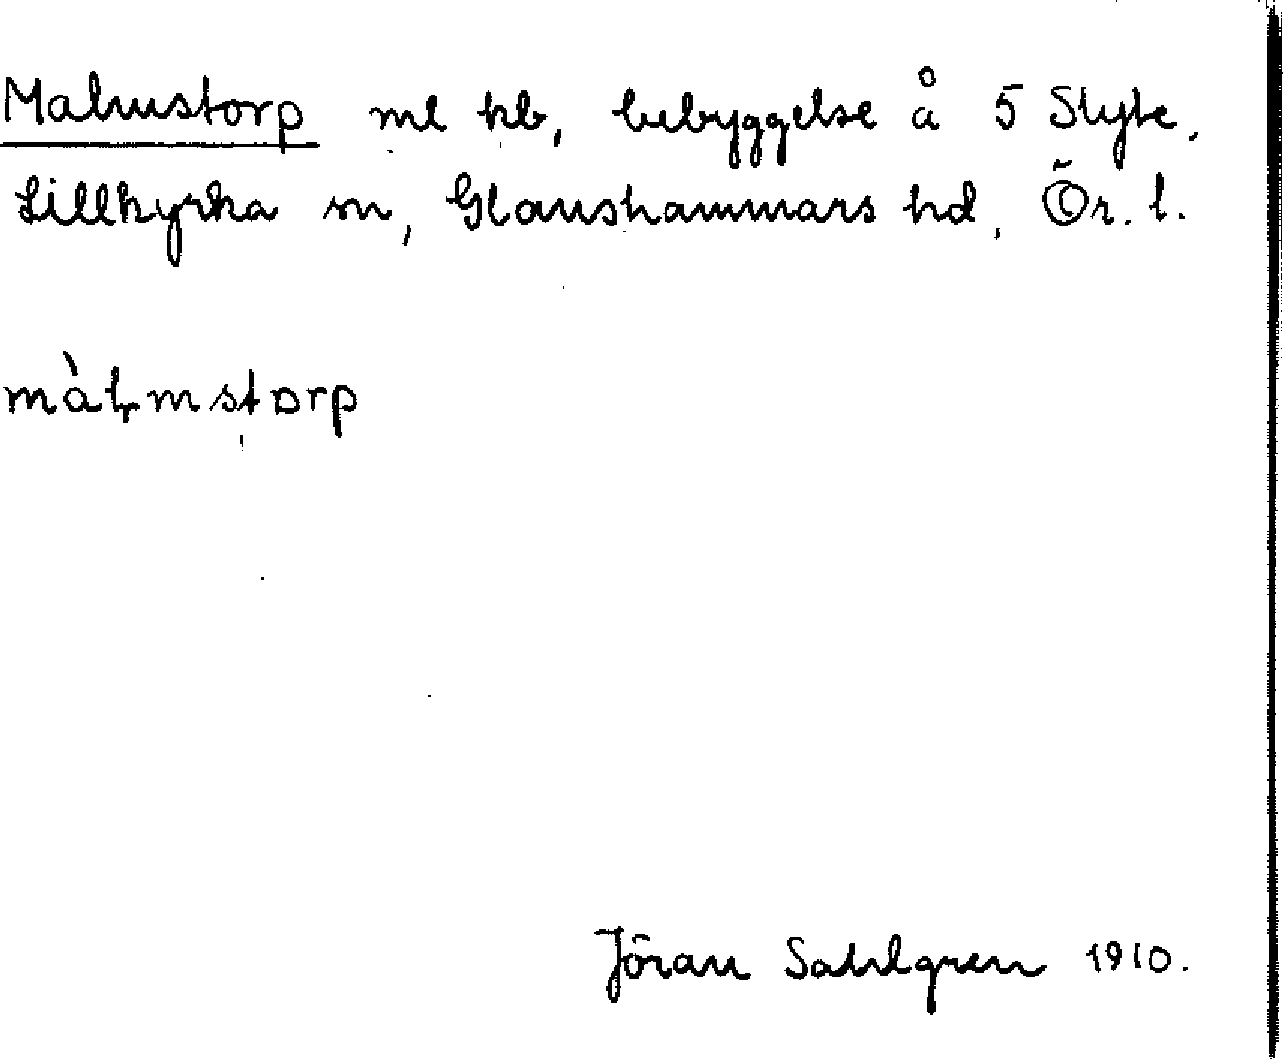 Malmstorp ml kb, bebyggelse å 5 Slyte.
Lillkyrka sn, Glanshammars hd, Ör. l.
màƚmstɒrp
Jöran Sahlgren 1910.